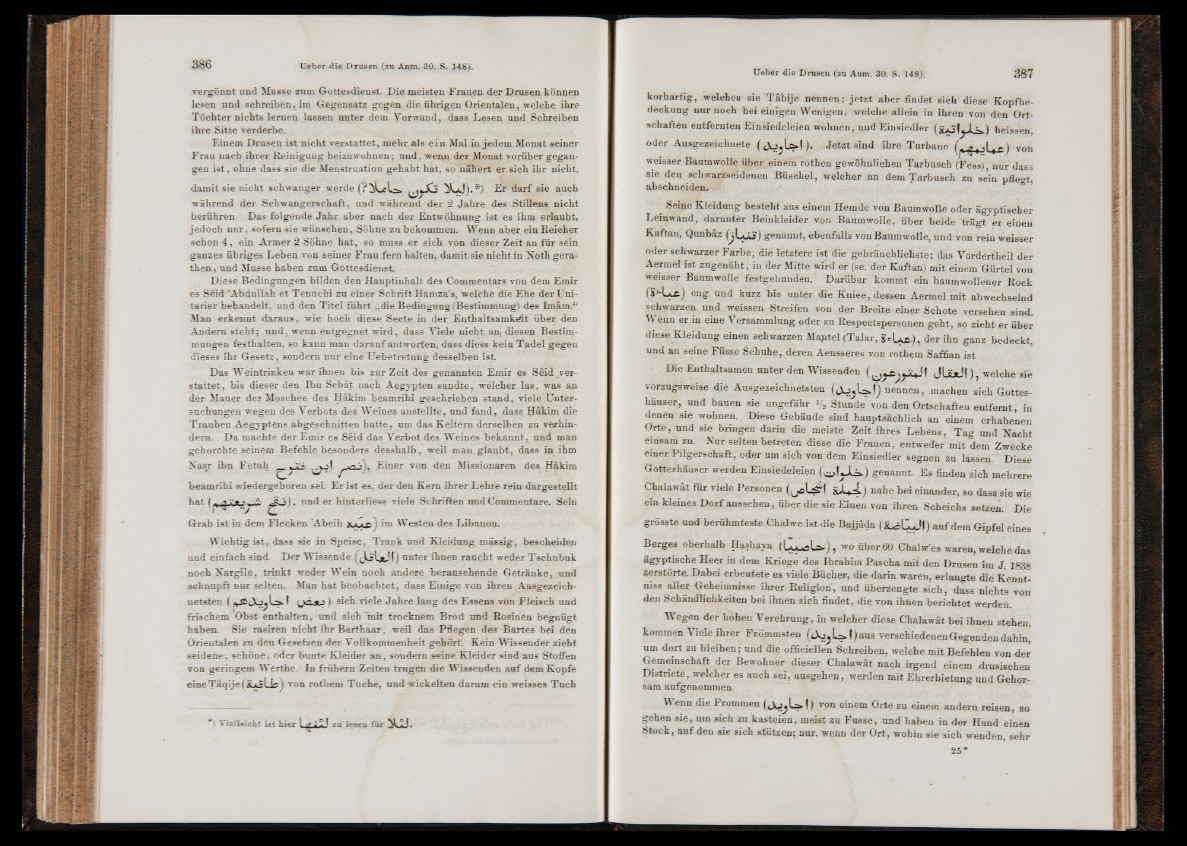 386 Ueber die Drusen (zu Anm. 30. S. 148).
vergönnt und Musse zum Gottesdienst. Die meisten Frauen der Drusen können
lesen und schreiben, im Gegensatz gegen die übrigen Orientalen, welche ihre
Töchter nichts lernen lassen unter dem Vorwand, dass Lesen und Schreiben
ihre Sitte verderbe.
Einem Drusen ist nicht verstattet, mehr als ein Mal in jedem Monat seiner
Frau nach ihrer Reinigung beizuwohnen; und, wenn der Monat vorüber gegan-
gen ist, ohne dass sie die Menstruation gehabt hat, so nähert er sich ihr nicht,
damit sie nicht schwanger werde (? ليلا تكون حاملا).*) Er darf sie auch
während der Schwangerschaft, und während der 2 Jahre des Stillens nicht
berühren. Das folgende Jahr aber nach der Entwöhnung ist es ihm erlaubt,
jedoch nur, sofern sie wünschen, Söhne zu bekommen. Wenn aber ein Reicher
schon 4, ein Armer 2 Söhne hat, so muss er sich von dieser Zeit an für sein
ganzes übriges Leben von seiner Frau fern halten, damit sie nicht in Noth gera-
then, und Musse haben zum Gottesdienst.
Diese Bedingungen bilden den Hauptinhalt des Commentars von dem Emir
es Sêid 'Abdullâh et Tenuchi zu einer Schrift Hamza's, welche die Ehe der Uni-
tarier behandelt, und den Titel führt „die Bedingung (Bestimmung) des Imâm.“
Man erkennt daraus, wie hoch diese Secte in der Enthaltsamkeit über den
Andern steht; und, wenn entgegnet wird, dass Viele nicht an diesen Bestim-
mungen festhalten, so kann man darauf antworten, dass diess kein Tadel gegen
dieses ihr Gesetz, sondern nur eine Uebetretung desselben ist.
Das Weintrinken war ihnen bis zur Zeit des genannten Emir es Sêid ver-
stattet, bis dieser den Ibn Sebât nach Aegypten sandte, welcher las, was an
der Mauer der Moschee des Hâkim beamrihi geschrieben stand, viele Unter-
suchungen wegen des Verbots des Weines anstellte, und fand, dass Hâkim die
Trauben Aegyptens abgeschnitten hatte, um das Keltern derselben zu verhin-
dern. Da machte der Emir es Sêid das Verbot des Weines bekannt, und man
gehorchte seinem Befehle besonders desshalb, weil man glaubt, dass in ihm
Nasr ibn Fetuh نصر ابن فتوح), Einer von den Missionaren des Hâkim
beamrihi wiedergeboren sei. Er ist es, der den Kern ihrer Lehre rein dargestellt
hat (نقح شريعتهم), und er hinterliess viele Schriften und Commentare. Sein
Grab ist in dem Flecken 'Abeih عبيه) im Westen des Libanon.
Wichtig ist, dass sie in Speise, Trank und Kleidung mässig, bescheiden
und einfach sind. Der Wissende (العاقل) unter ihnen raucht weder Tschubuk
noch Nargîle, trinkt weder Wein noch andere berauschende Getränke, und
schnupft nur selten. Man hat beobachtet, dass Einige von ihren Ausgezeich-
netsten (بعض اجاويدهم) sich viele Jahre lang des Essens von Fleisch und
frischem Obst enthalten, und sich mit trocknem Brod und Rosinen begnügt
haben. Sie rasiren nicht ihr Barthaar, weil das Pflegen des Bartes bei den
Orientalen zu den Gesetzen der Vollkommenheit gehört. Kein Wissender zieht
seidene, schöne, oder bunte Kleider an, sondern seine Kleider sind aus Stoffen
von geringem Werthe. In frühern Zeiten trugen die Wissenden auf dem Kopfe
eine Tâqije (طاقية) von rothem Tuche, und wickelten darum ein weisses Tuch
*) Vielleicht ist hier zu lesen für لئلا.
Ueber die Drusen (zu Anm. 30. S. 148). 387
korbartig, welches sie Tâbije nennen; jetzt aber findet sich diese Kopfbe-
deckung nur noch bei einigen Wenigen, welche allein in ihren von den Ort-
schaften entfernten Einsiedeleien wohnen, und Einsiedler (خلواتية) heissen,
oder Ausgezeichnete (اجاويد). Jetzt sind ihre Turbane (عمايمهم) von
weisser Baumwolle über einem rothen gewöhnlichen Tarbusch (Fess), nur dass
sie den schwarzseidenen Büschel, welcher an dem Tarbusch zu sein pflegt,
abschneiden.
Seine Kleidung besteht aus einem Hemde von Baumwolle oder ägyptischer
Leinwand, darunter Beinkleider von Baumwolle, über beide trägt er einen
Kaftan, Qunbâz (قنباز) genannt, ebenfalls von Baumwolle, und von rein weisser
oder schwarzer Farbe, die letztere ist die gebräuchlichste; das Vordertheil der
Aermel ist zugenäht, in der Mitte wird er (sc. der Kaftan) mit einem Gürtel von
weisser Baumwolle festgebunden. Darüber kommt ein baumwollener Rock
(عباءة) eng und kurz bis unter die Kniee, dessen Aermel mit abwechselnd
schwarzen und weissen Streifen von der Breite einer Schote versehen sind.
Wenn er in eine Versammlung oder zu Respectspersonen geht, so zieht er über
diese Kleidung einen schwarzen Mantel (Talar, عباءة), der ihn ganz bedeckt,
und an seine Füsse Schuhe, deren Aeusseres von rothem Saffian ist
Die Enthaltsamen unter den Wissenden (العقال المتورعين), welche sie
vorzugsweise die Ausgezeichnetsten (اجاويد) nennen, machen sich Gottes-
häuser, und bauen sie ungefähr ½ Stunde von den Ortschaften entfernt, in
denen sie wohnen. Diese Gebäude sind hauptsächlich an einem erhabenen
Orte, und sie bringen darin die meiste Zeit ihres Lebens, Tag und Nacht
einsam zu. Nur selten betreten diese die Frauen, entweder mit dem Zwecke
einer Pilgerschaft, oder um sich von dem Einsiedler segnen zu lassen. Diese
Gotteshäuser werden Einsiedeleien (خلوات) genannt. Es finden sich mehrere
Chalawât für viele Personen nahe bei einander, so dass sie wie
ein kleines Dorf aussehen, über die sie Einen von ihren Scheichs setzen. Die
grösste und berühmteste Chalwe ist die Bajjâda (البياضة) auf dem Gipfel eines
Berges oberhalb Hasbaya (حاصبيا), wo über 60 Chalw'es waren, welche das
ägyptische Heer in dem Kriege des Ibrahim Pascha mit den Drusen im J. 1838
zerstörte. Dabei erbeutete es viele Bücher, die darin waren, erlangte die Kennt-
niss aller Geheimnisse ihrer Religion, und überzeugte sich, dass nichts von
den Schändlichkeiten bei ihnen sich findet, die von ihnen berichtet werden.
Wegen der hohen Verehrung, in welcher diese Chalawât bei ihnen stehen,
kommen Viele ihrer Frömmsten (اجاويد) aus verschiedenen Gegenden dahin,
um dort zu bleiben; und die officiellen Schreiben, welche mit Befehlen von der
Gemeinschaft der Bewohner dieser Chalawât nach irgend einem drusischen
Districte, welcher es auch sei, ausgehen, werden mit Ehrerbietung und Gehor-
sam aufgenommen.
Wenn die Frommen (اجاويد) von einem Orte zu einem andern reisen, so
gehen sie, um sich zu kasteien, meist zu Fusse, und haben in der Hand einen
Stock, auf den sie sich stützen; nur, wenn der Ort, wohin sie sich wenden, sehr
25*